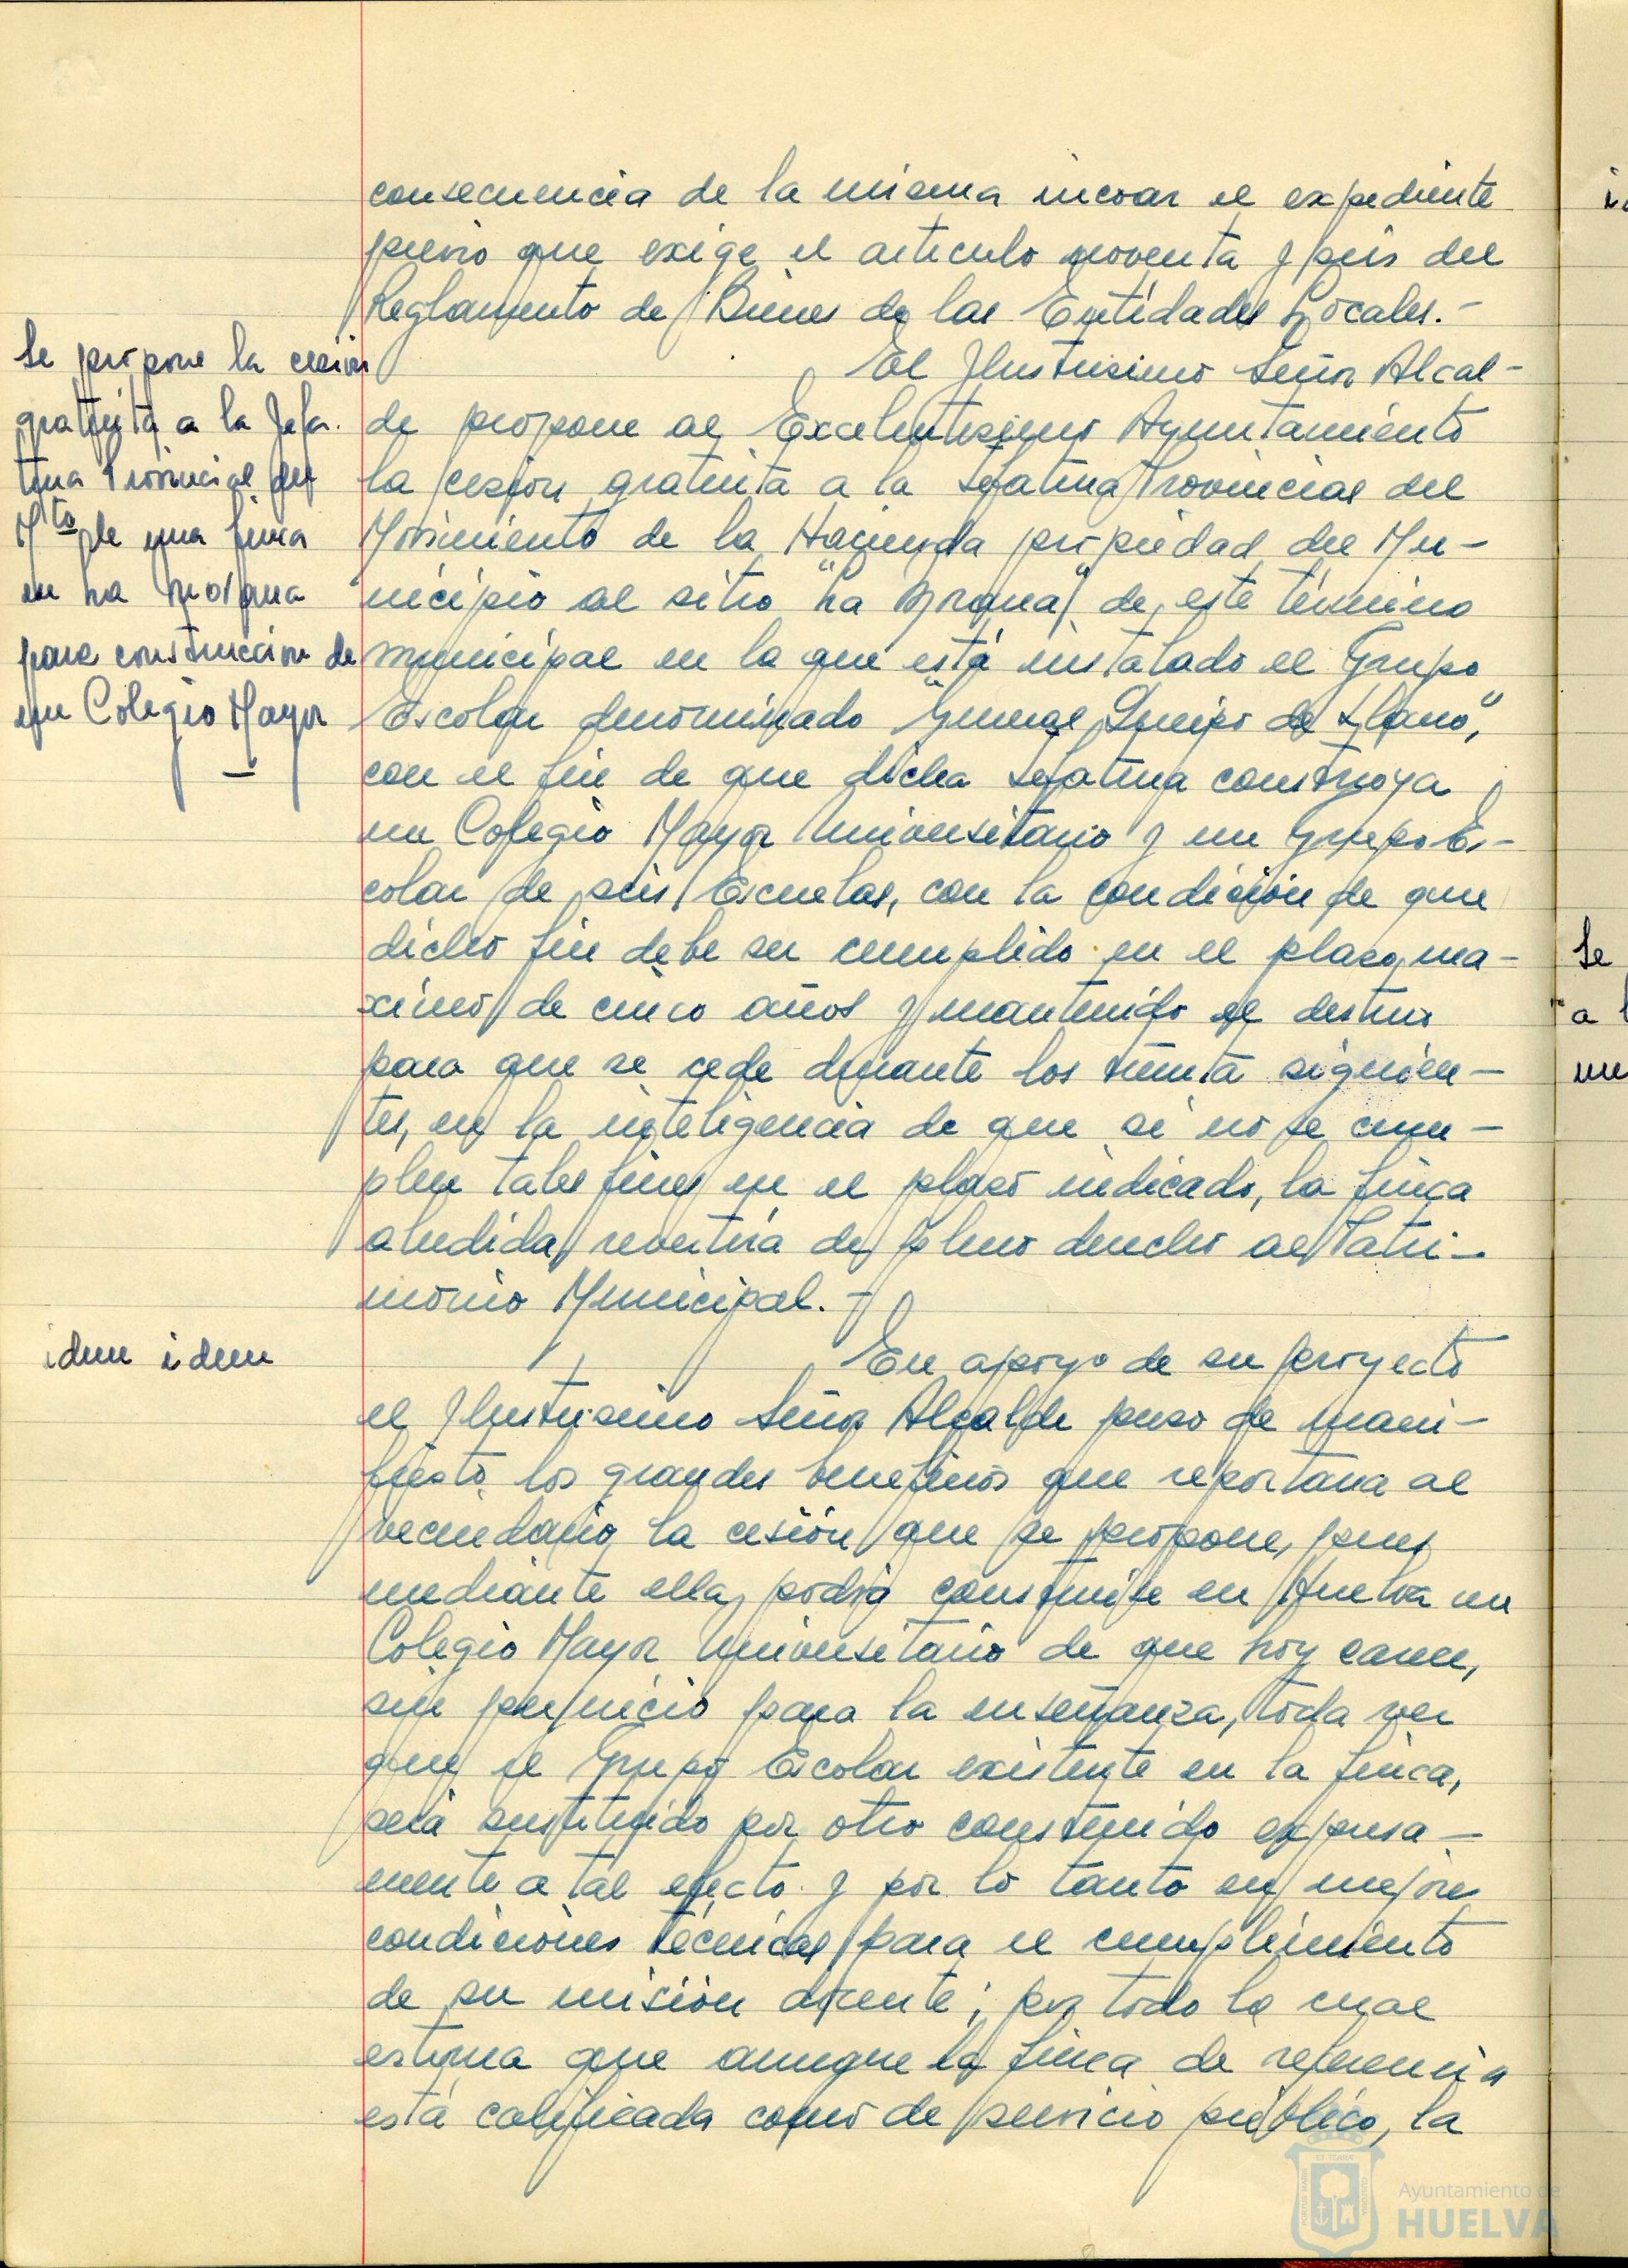 consecuencia de la misma incoar el expediente
previo que exige el artículo noventa y seis del
Reglamento de Bienes de las Entidades Locales.-
Se propone la cesión
gratuita a la Jefa-
tura Provincial del
Mto de una finca
en La Morana
para construcción de
un Colegio Mayor
El Ilustrisimo Señor Alcal-
de propone al Excelentisimo Ayuntamiento
la cesión gratuita a la Jefatura Provincial del
Movimiento de la Hacienda propiedad del Mu-
nicipio al sitio "La Morana" de este término
municipal en la que está instalado el Grupo
Escolar denominado "General Queipo de Llano",
con el fin de que dicha Jefatura construya
un Colegio Mayor Universitario y un Grupo Es-
colar de seis Escuelas, con la condición de que
dicho fin debe ser cumplido en el plazo ma-
ximo de cinco años y mantenido el destino
para que se cede durante los treinta siguien-
tes, en la inteligencia de que si no se cum-
plen tales fines en el plazo indicado, la finca
aludida revertirá de pleno derecho al Patri-
monio Municipal.-
idem idem
En apoyo de su proyecto
el Ilustrisimo Señor Alcalde puso de mani-
fiesto los grandes beneficios que reportaria al
vecindario la cesión que se propone, pues
mediante ella, podrá construirse en Huelva un
Colegio Mayor Universitario de que hoy carece,
sin perjuicio para la enseñanza, toda vez
que el Grupo Escolar existente en la finca,
será sustituido por otro construido expresa-
mente a tal efecto y por lo tanto en mejores
condiciones técnicas para el cumplimiento
de su misión docente; por todo lo cual
estima que aunque la finca de referencia
está calificada como de servicio público, la
Se
a l
un
Ayuntamiento de
HUELVA